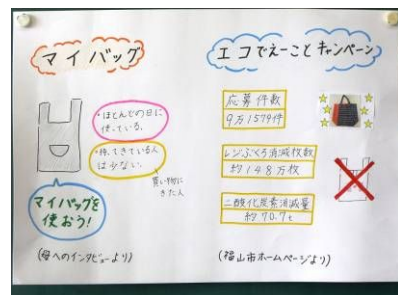 マイバッグ
・ほとんどの日に
使っている。
・持ってきている人
は少ない。
買い物に
きた人
マイバッグを
使おう!
(母へのインタビューより)
エコでえーことキャンペーン
応募件数
9万1579件
レジぶくろ消減枚数
約148万枚
二酸化炭素消減量
約70.7t
(福山市ホームページより)